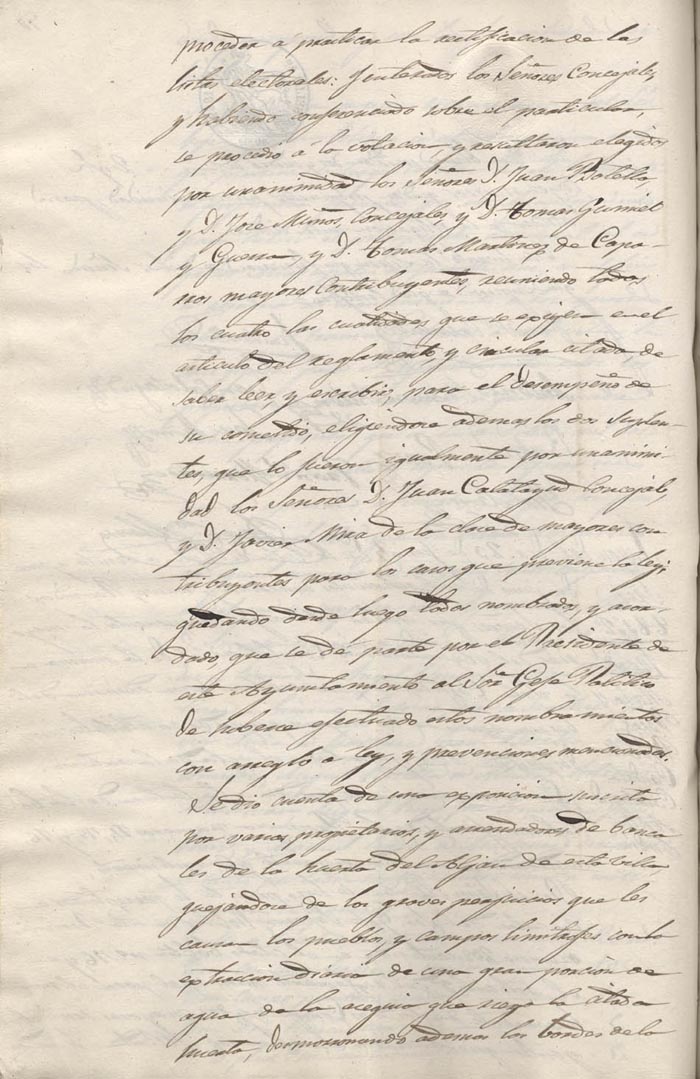 proceder a practicar la rectificacion de las
listas electorales: Enterados los Señores Concejales,
y habiendo conferenciado sobre el particular,
se procedió a la votacion, y resultaron elegidos
por unanimidad los Señores D. Juan
y D. Jose Muños, Concejales, y D. Tomas Gumiel
y Guerra, y D. Tomas Martinez de Capa-
rros mayores Contribuyentes, reuniendo todos
los cuatro las cualidades que se exijen en el
articulo del reglamento y circular citada de
saber leer, y escribir, para el desempeño de
su cometido, eligiendose ademas los dos suplen-
tes, que lo fueron igualmente por unanimi-
dad los Señores D. Juan Calatayud Concejal,
y D. Javier Mira de la clase de mayores con
tribuyentes para los casos que previene la ley;
quedando desde luego todos nombrados, y acor-
dado que se de parte por el Presidente de
este Ayuntamiento al Sor. Gefe Politico
de haberse efectuado estos nombramientos
con arreglo a ley, y prevenciones mencionadas.
Se dio cuenta de una exposicion suscrita
por varios propietarios, y arrendadores de banca
les de la huerta del Aljau de esta villa
quejandose de los graves perjuicios que les
causan los pueblos y campos limitrofes con la
extraccion diaria de una gran porcion de
agua de la acequia que riega la citada
huerta, desmoronando ademas los bordes de la